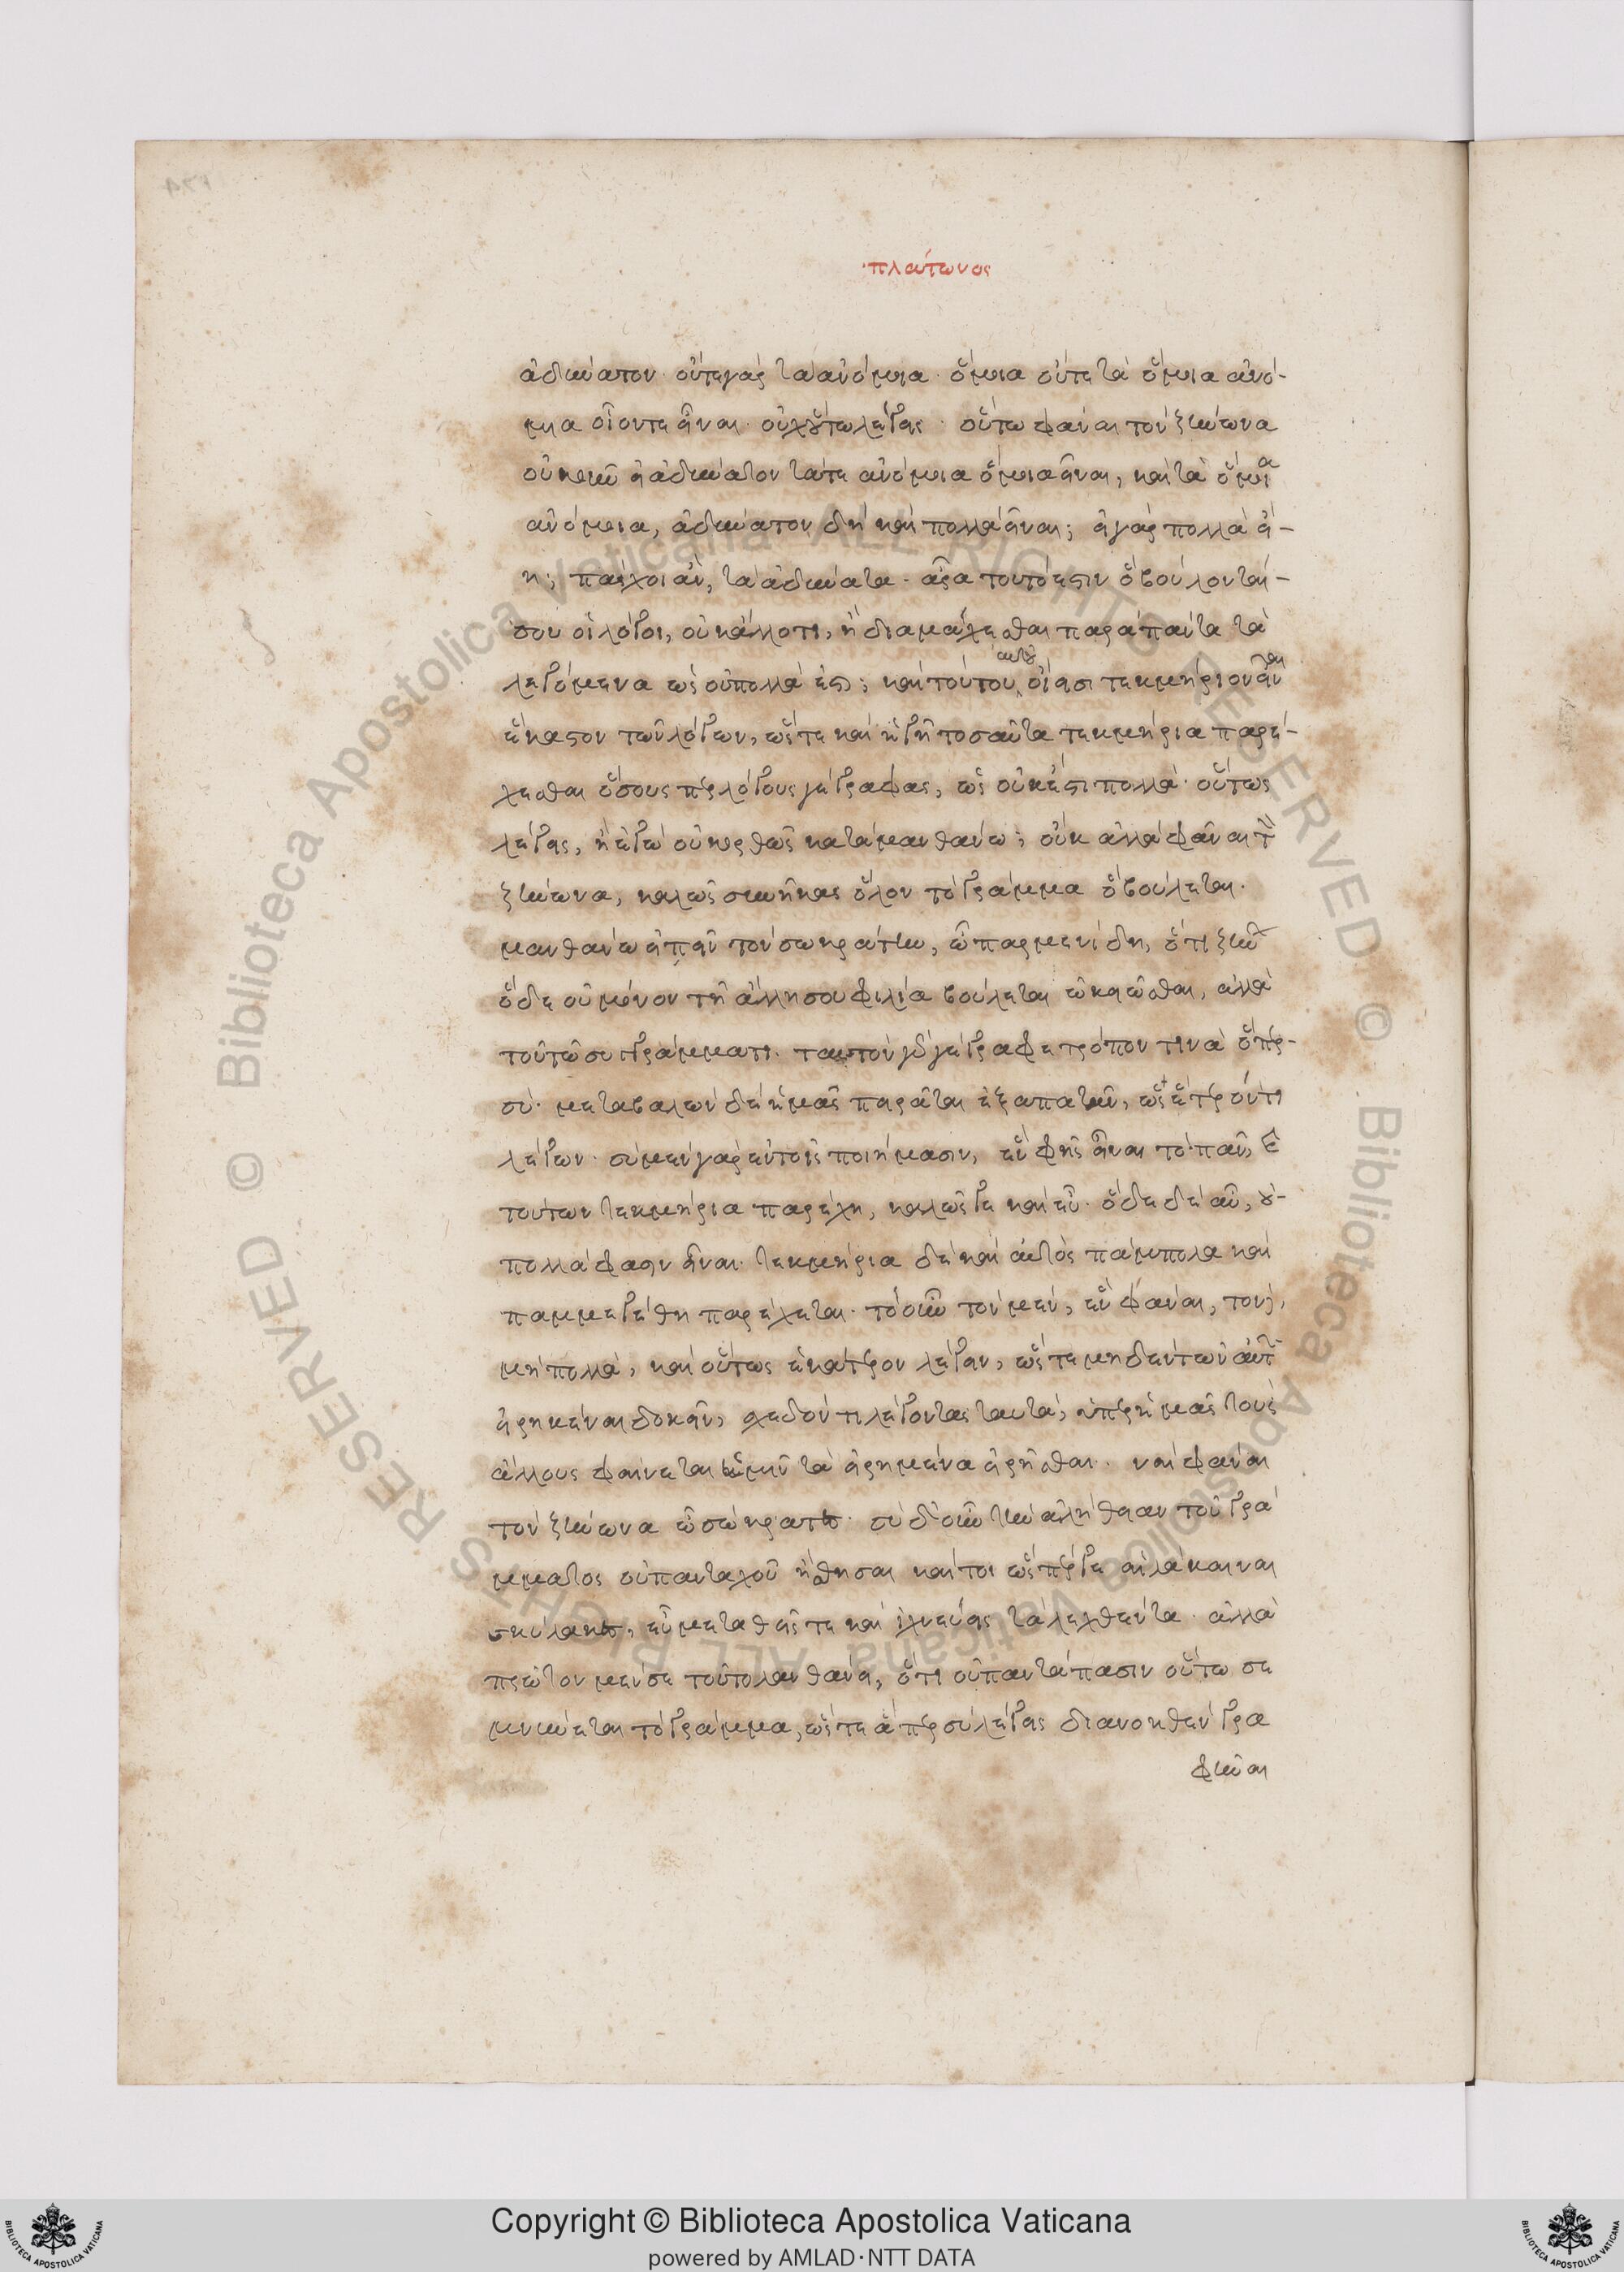 ·πλάτωνος
ἀδύνατον· οὔτε γὰρ τὰ ἀνόμοια· ὅμοια οὔτε τὰ ὅμοια ἀνό-
μοια οἷόν τε εἶναι· οὐχ οὕτω λέγεις· οὕτω φάναι τὸν ζήνωνα
οὐκοῦν εἰ ἀδύνατον τά τε ἀνόμοια ὅμοια εἶναι, καὶ τὰ ὅμοια
ἀνόμοια, ἀδύνατον δὴ καὶ πολλὰ εἶναι; εἰ γὰρ πολλὰ εἴ-
η; πάσχοι ἂν, τὰ ἀδύνατα· ἆρα τοῦτό ἐστιν ὃ βούλονταί
σου οἱ λόγοι, οὐκ ἄλλο τι, ἢ διαμάχεσθαι παρὰ πάντα τὰ
λεγόμενα ὡς οὐ πολλά ἐστι; καὶ τούτου αὐτοῦ οἴει σοι τεκμήριον εἶναι
ἕκαστον τῶν λόγων, ὥστε καὶ ἡγῇ τοσαῦτα τεκμήρια παρέ-
χεσθαι ὅσους περ λόγους γέγραφας, ὡς οὐκ ἔστι πολλά· οὕτως
λέγεις, ἢ ἐγὼ οὐκ ὀρθῶς καταμανθάνω; οὐκ ἀλλὰ φάναι τὸν
ζήνωνα, καλῶς συνῆκας ὅλον τὸ γράμμα ὃ βούλεται.
μανθάνω εἰπεῖν τὸν σωκράτην, ὦ παρμενίδη, ὅτι ζήνων
ὅδε οὐ μόνον τῇ ἄλλῃ σου φιλίᾳ βούλεται ὠκειῶσθαι, ἀλλὰ
τοῦ τῷ συγγράμματι· ταυτὸν γὰρ γέγραφε τρόπον τινὰ ὅπερ
σύ· μεταβαλὼν δὲ ἡμᾶς πειρᾶται ἐξαπατᾶν, ὡς ἕτερόν τι
λέγων· σὺ μὲν γὰρ ἐν τοῖς ποιήμασιν, ἓν φῂς εἶναι τὸ πᾶν, καὶ
τούτων τεκμήρια παρέχῃ, καλῶς γε καὶ εὖ· ὅδε δὲ αὖ, οὐ
πολλά φησιν εἶναι· τεκμήρια δὲ καὶ αὐτὸς πάμπολα καὶ
παμμεγέθη παρέχεται· τὸ οὖν τὸν μὲν, ἓν φάναι, τὸν δὲ,
μὴ πολλά, καὶ οὕτως ἑκάτερον λέγειν, ὥστε μηδὲν τῶν αὐτῶν
εἰρηκέναι δοκεῖν, σχεδόν τι λέγοντας ταυτά, ὑπὲρ ἡμᾶς τοὺς
ἄλλους φαίνεται ὑμῖν τὰ εἰρημένα εἰρῆσθαι. ναὶ φάναι
τὸν ζήνωνα ὦ σώκρατες· σὺ δ' οὖν τὴν ἀλήθειαν τοῦ γρά
μματος οὐ πανταχοῦ ᾔσθησαι καί τοι ὥσπερ γε αἱ λάκαιναι
σκύλακες, εὖ μεταθεῖς τε καὶ ἰχνεύεις τὰ λεχθέντα· ἀλλὰ
πρῶτον μέν σε τοῦτο λανθάνει, ὅτι οὐ παντάπασιν οὕτω σε
μνύνεται τὸ γράμμα, ὥστε ἅπερ σὺ λέγεις διανοηθὲν γρα
φῆναι
Copyright © Biblioteca Apostolica Vaticana
powered by AMLAD·NTT DATA